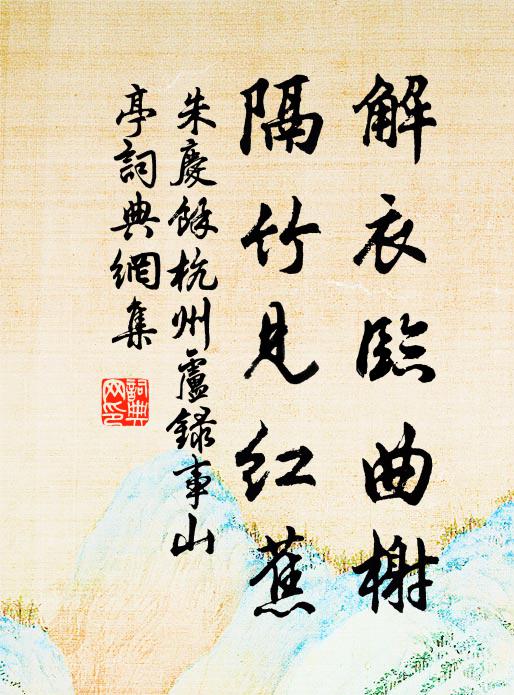 解衣臨曲榭
隔竹見红蕉
朱慶餘杭州盧錄事山
亭詞典網集
詞典
网印